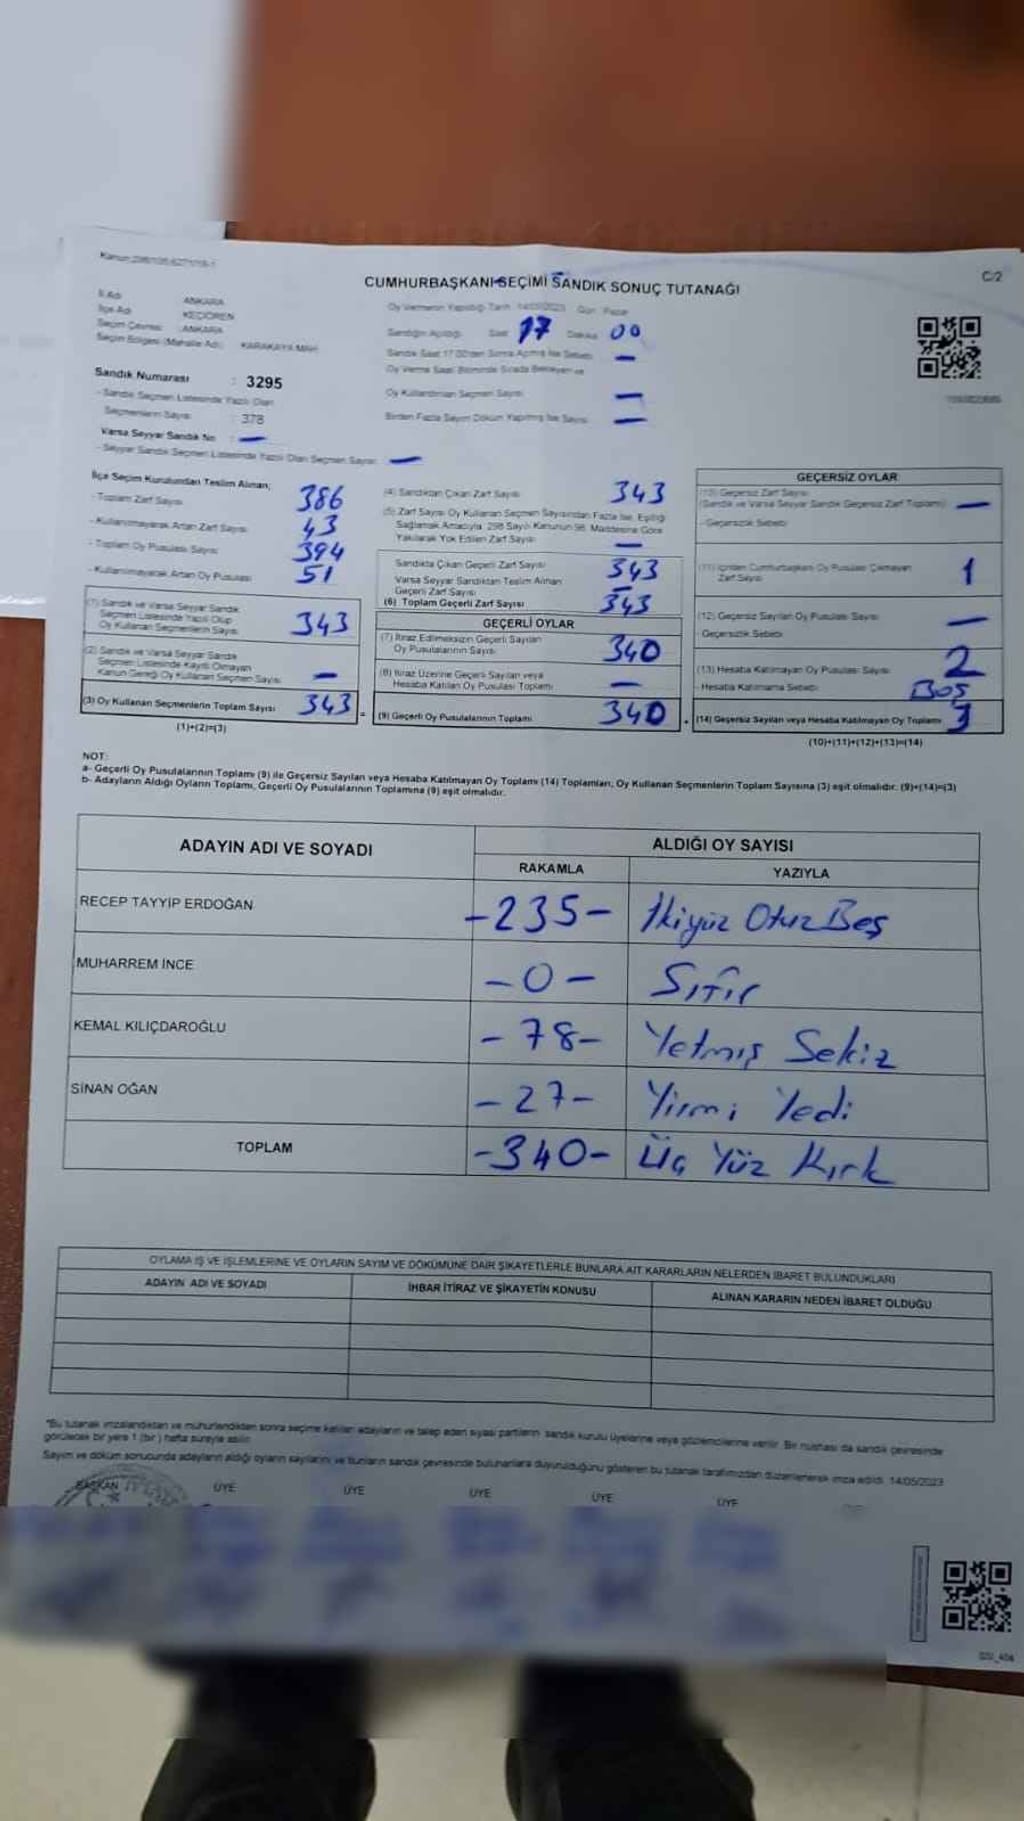 CUMHURBAŞKANI SEÇİMİ SANDIK SONUÇ TUTANAĞI
C/2
İl Adı ANKARA
İlçe Adı KEÇİÖREN
Seçim Çevresi : ANKARA
Seçim Bölgesi (Mahalle Adı) KARAKAYA MAH.
Sandık Numarası : 3295
- Sandık Seçmen Listesinde Yazılı Olan
Seçmenlerin Sayısı : 378
Varsa Seyyar Sandık No : —
- Seyyar Sandık Seçmen Listesinde Yazılı Olan Seçmen Sayısı —
Oy Vermenin Yapıldığı Tarih 14/05/2023 Gün Pazar
Sandığın Açıldığı Saat 17 Dakika 00
Sandık Saat 17.00'den Sonra Açılmış İse Sebebi —
Oy Verme Saati Bitiminde Sırada Bekleyen ve
Oy Kullandırılan Seçmen Sayısı —
Birden Fazla Sayım Döküm Yapılmış İse Sayısı —
İlçe Seçim Kurulundan Teslim Alınan;
- Toplam Zarf Sayısı 386
- Kullanılmayarak Artan Zarf Sayısı 43
- Toplam Oy Pusulası Sayısı 394
- Kullanılmayarak Artan Oy Pusulası 51
(1) Sandık ve Varsa Seyyar Sandık
Seçmen Listesinde Yazılı Olup
Oy Kullanan Seçmenlerin Sayısı 343
(2) Sandık ve Varsa Seyyar Sandık
Seçmen Listesinde Kayıtlı Olmayan
Kanun Gereği Oy Kullanan Seçmen Sayısı —
(3) Oy Kullanan Seçmenlerin Toplam Sayısı 343
(1)+(2)=(3)
(4) Sandıktan Çıkan Zarf Sayısı 343
(5) Zarf Sayısı Oy Kullanan Seçmen Sayısından Fazla İse, Eşitliği
Sağlamak Amacıyla, 298 Sayılı Kanunun 98. Maddesine Göre
Yakılarak Yok Edilen Zarf Sayısı —
Sandıkta Çıkan Geçerli Zarf Sayısı 343
Varsa Seyyar Sandıktan Teslim Alınan
Geçerli Zarf Sayısı —
(6) Toplam Geçerli Zarf Sayısı 343
GEÇERLİ OYLAR
(7) İtiraz Edilmeksizin Geçerli Sayılan
Oy Pusulalarının Sayısı 340
(8) İtiraz Üzerine Geçerli Sayılan veya
Hesaba Katılan Oy Pusulası Toplamı —
(9) Geçerli Oy Pusulalarının Toplamı 340
GEÇERSİZ OYLAR
(10) Geçersiz Zarf Sayısı
(Sandık ve Varsa Seyyar Sandık Geçersiz Zarf Toplamı) —
- Geçersizlik Sebebi
(11) İçinden Cumhurbaşkanı Oy Pusulası Çıkmayan
Zarf Sayısı 1
(12) Geçersiz Sayılan Oy Pusulası Sayısı —
- Geçersizlik Sebebi
(13) Hesaba Katılmayan Oy Pusulası Sayısı 2
- Hesaba Katılmama Sebebi BOŞ
(14) Geçersiz Sayılan veya Hesaba Katılmayan Oy Toplamı 3
(10)+(11)+(12)+(13)=(14)
NOT:
a- Geçerli Oy Pusulalarının Toplamı (9) ile Geçersiz Sayılan veya Hesaba Katılmayan Oy Toplamı (14) Toplamları, Oy Kullanan Seçmenlerin Toplam Sayısına (3) eşit olmalıdır. (9)+(14)=(3)
b- Adayların Aldığı Oyların Toplamı, Geçerli Oy Pusulalarının Toplamına (9) eşit olmalıdır.
ADAYIN ADI VE SOYADI
ALDIĞI OY SAYISI
RAKAMLA YAZIYLA
RECEP TAYYİP ERDOĞAN -235- İkiyüz Otuz Beş
MUHARREM İNCE -0- Sıfır
KEMAL KILIÇDAROĞLU -78- Yetmiş Sekiz
SİNAN OĞAN -27- Yirmi Yedi
TOPLAM -340- Üç Yüz Kırk
OYLAMA İŞ VE İŞLEMLERİNE VE OYLARIN SAYIM VE DÖKÜMÜNE DAİR ŞİKAYETLERLE BUNLARA AİT KARARLARIN NELERDEN İBARET BULUNDUKLARI
ADAYIN ADI VE SOYADI İHBAR İTİRAZ VE ŞİKAYETİN KONUSU ALINAN KARARIN NEDEN İBARET OLDUĞU
*Bu tutanak imzalandıktan ve mühürlendikten sonra seçime katılan adayların ve talep eden siyasi partilerin sandık kurulu üyelerine veya gözlemcilerine verilir. Bir nüshası da sandık çevresinde
görülecek bir yere 1 (bir) hafta süreyle asılır.
Sayım ve döküm sonucunda adayların aldığı oyların sayılarını ve bunların sandık çevresinde bulunanlara duyurulduğunu gösteren bu tutanak tarafımızdan düzenlenerek imza edildi. 14/05/2023
BAŞKAN ÜYE ÜYE ÜYE ÜYE ÜYE